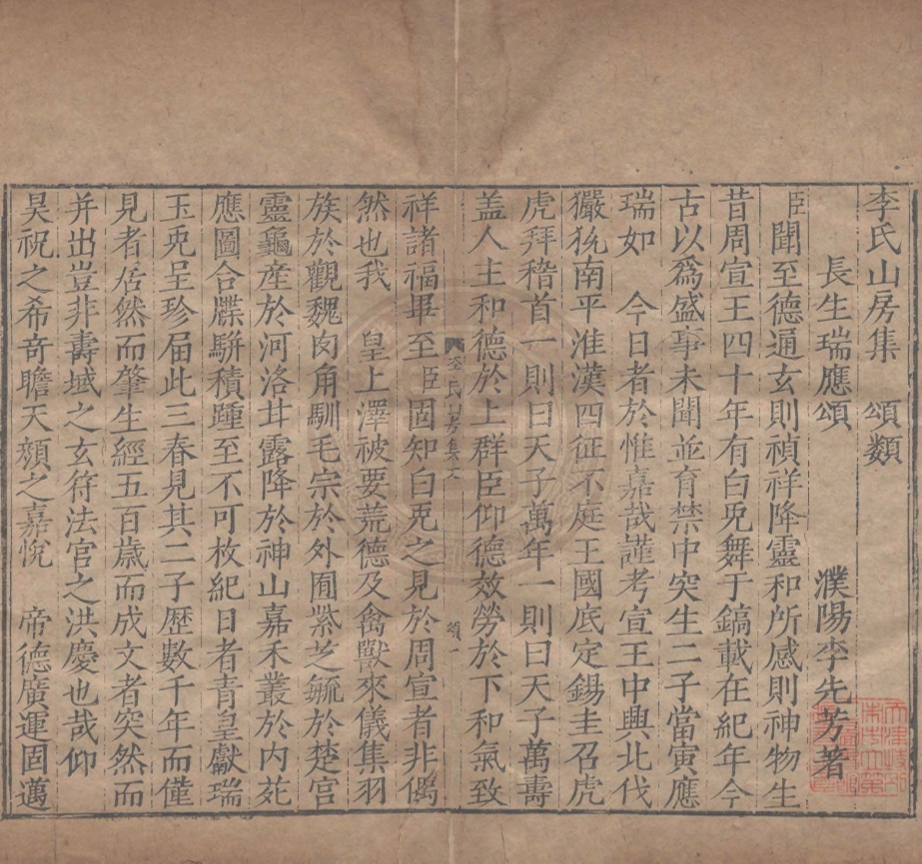 李氏山房集　頌類
長生瑞應頌　　濮陽李先芳著
臣聞至德通玄則禎祥降靈和所感則神物生
昔周宣王四十年有白兕舞于鎬載在紀年今
古以爲盛事未聞並育禁中突生二子當寅應
瑞如　今日者於惟嘉哉謹考宣王中興北伐
玁狁南平淮漢四征不庭王國底定錫圭召虎
虎拜稽首一則曰天子萬年一則曰天子萬壽
盖人主和德於上群臣仰德效勞於下和氣致
李氏山房集
頌一
祥諸福畢至臣固知白兕之見於周宣者非偶
然也我　皇上澤被要荒德及禽獸來儀集羽
族於觀魏肉角馴毛宗於外囿紫芝毓於楚宫
靈龜産於河洛甘露降於神山嘉禾叢於内苑
應圖合牒駢積踵至不可枚紀日者青皇獻瑞
玉兎呈珍届此三春見其二子歴數千年而僅
見者居然而肇生經五百歳而成文者突然而
并出豈非壽域之玄符法官之洪慶也哉仰
昊祝之希奇瞻天顔之嘉悅　帝德廣運固邁